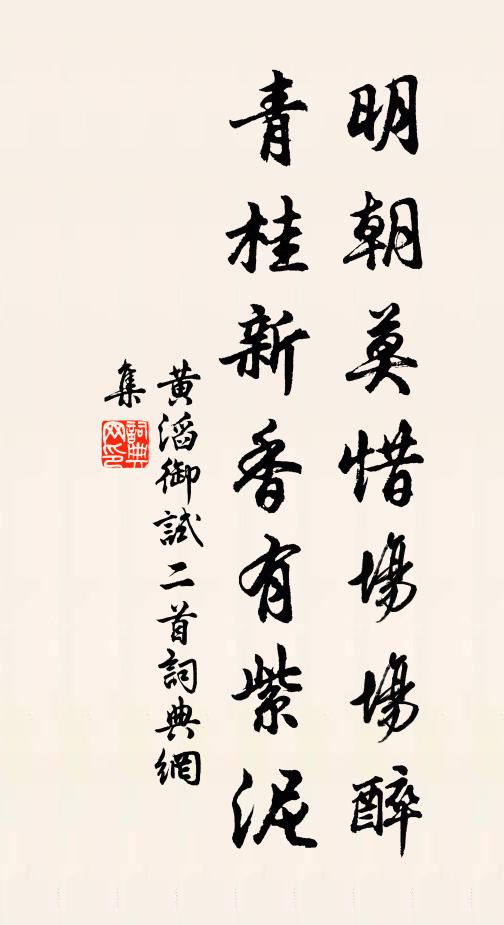 明朝莫惜場場醉
青桂新香有紫泥
黃滔御試二首詞典網
集
詞典
网印